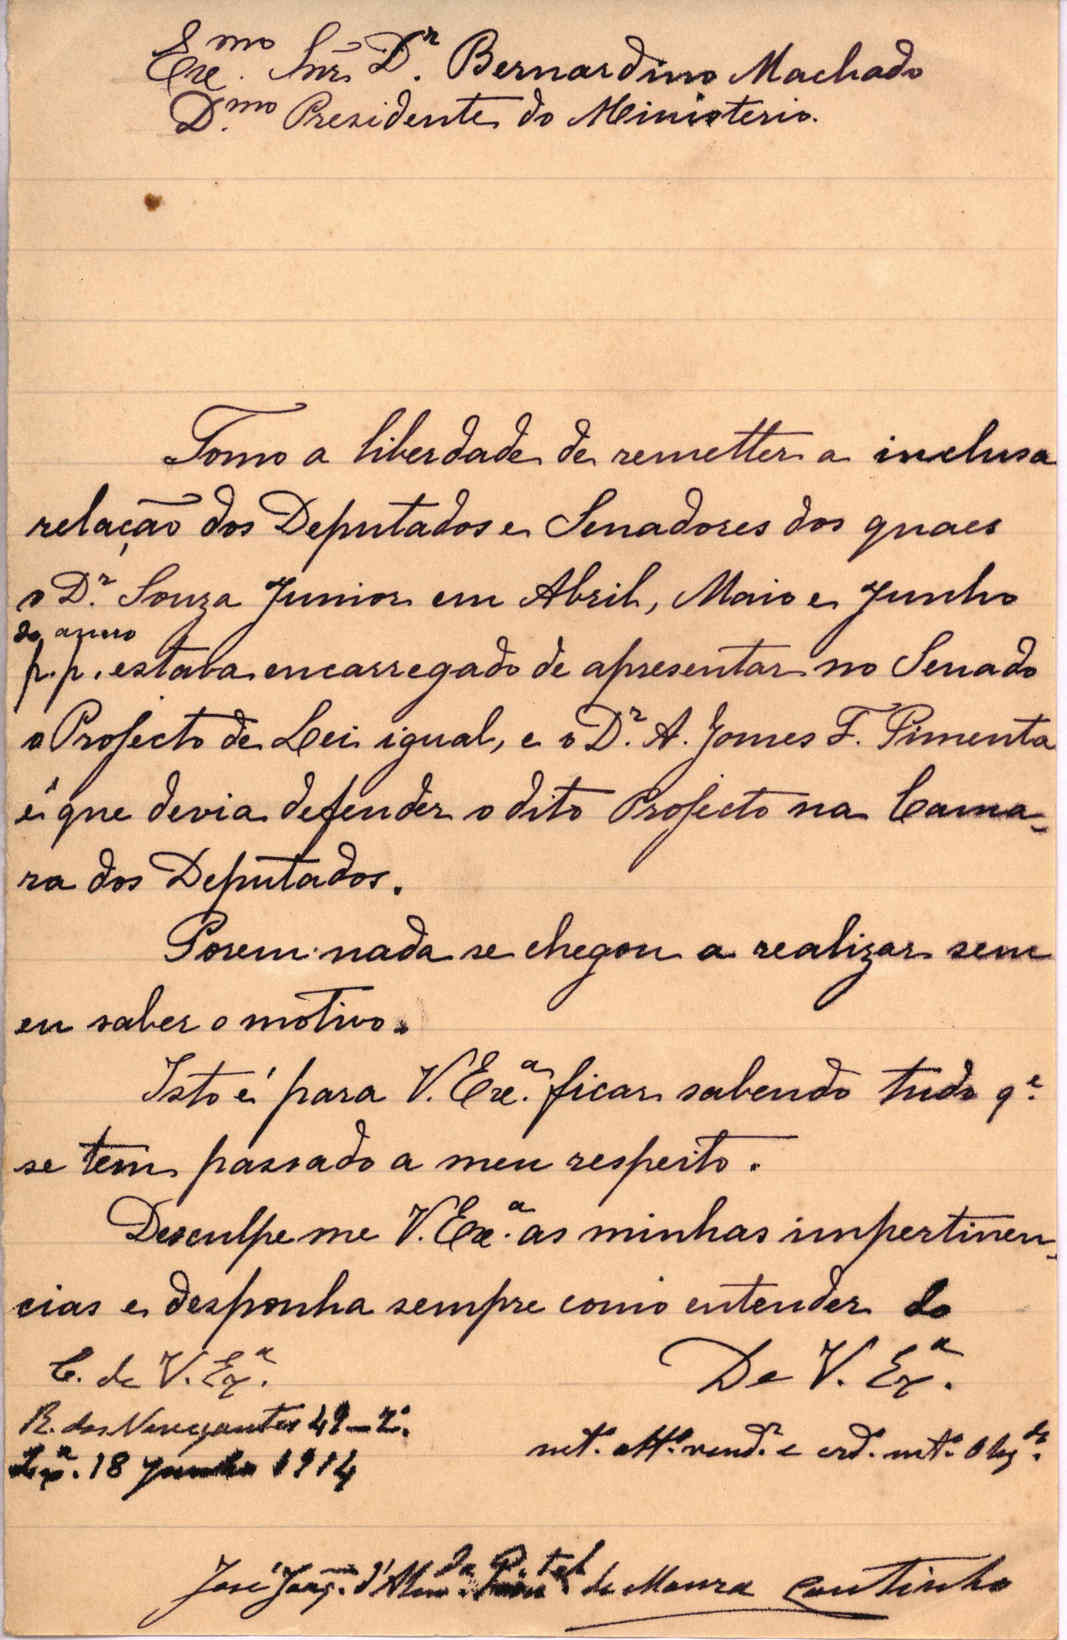 Exe.mo Snr. Dr. Bernardino Machado
D.mo Presidente do Ministerio.
Tomo a liberdade de remetter a inclusa
relação dos Deputados e Senadores dos quaes
o Dr. Souza Junior em Abril, Maio e Junho
do anno
p.p. estava encarregado de apresentar no Senado
o Projecto de Lei igual, e o Dr. A. Gomes F. Pimenta
é que devia defender o dito Projecto na Cama-
ra dos Deputados.
Porem nada se chegou a realizar sem
eu saber o motivo.
Isto é para V. Exe.a ficar sabendo tudo q.e
se tem passado a meu respeito.
Desculpe me V. Exe.a as minhas impertinen-
cias e desponha sempre como entender do
C. de V. Ex.a
De V. Ex.a
R. dos Navegantes 49-2.o
mt.o att.o vend.r e crd.o mt.o Obg.do
Lx.a 18 Junho 1914
José Joaq.m d'Alm.da de Moura Coutinho